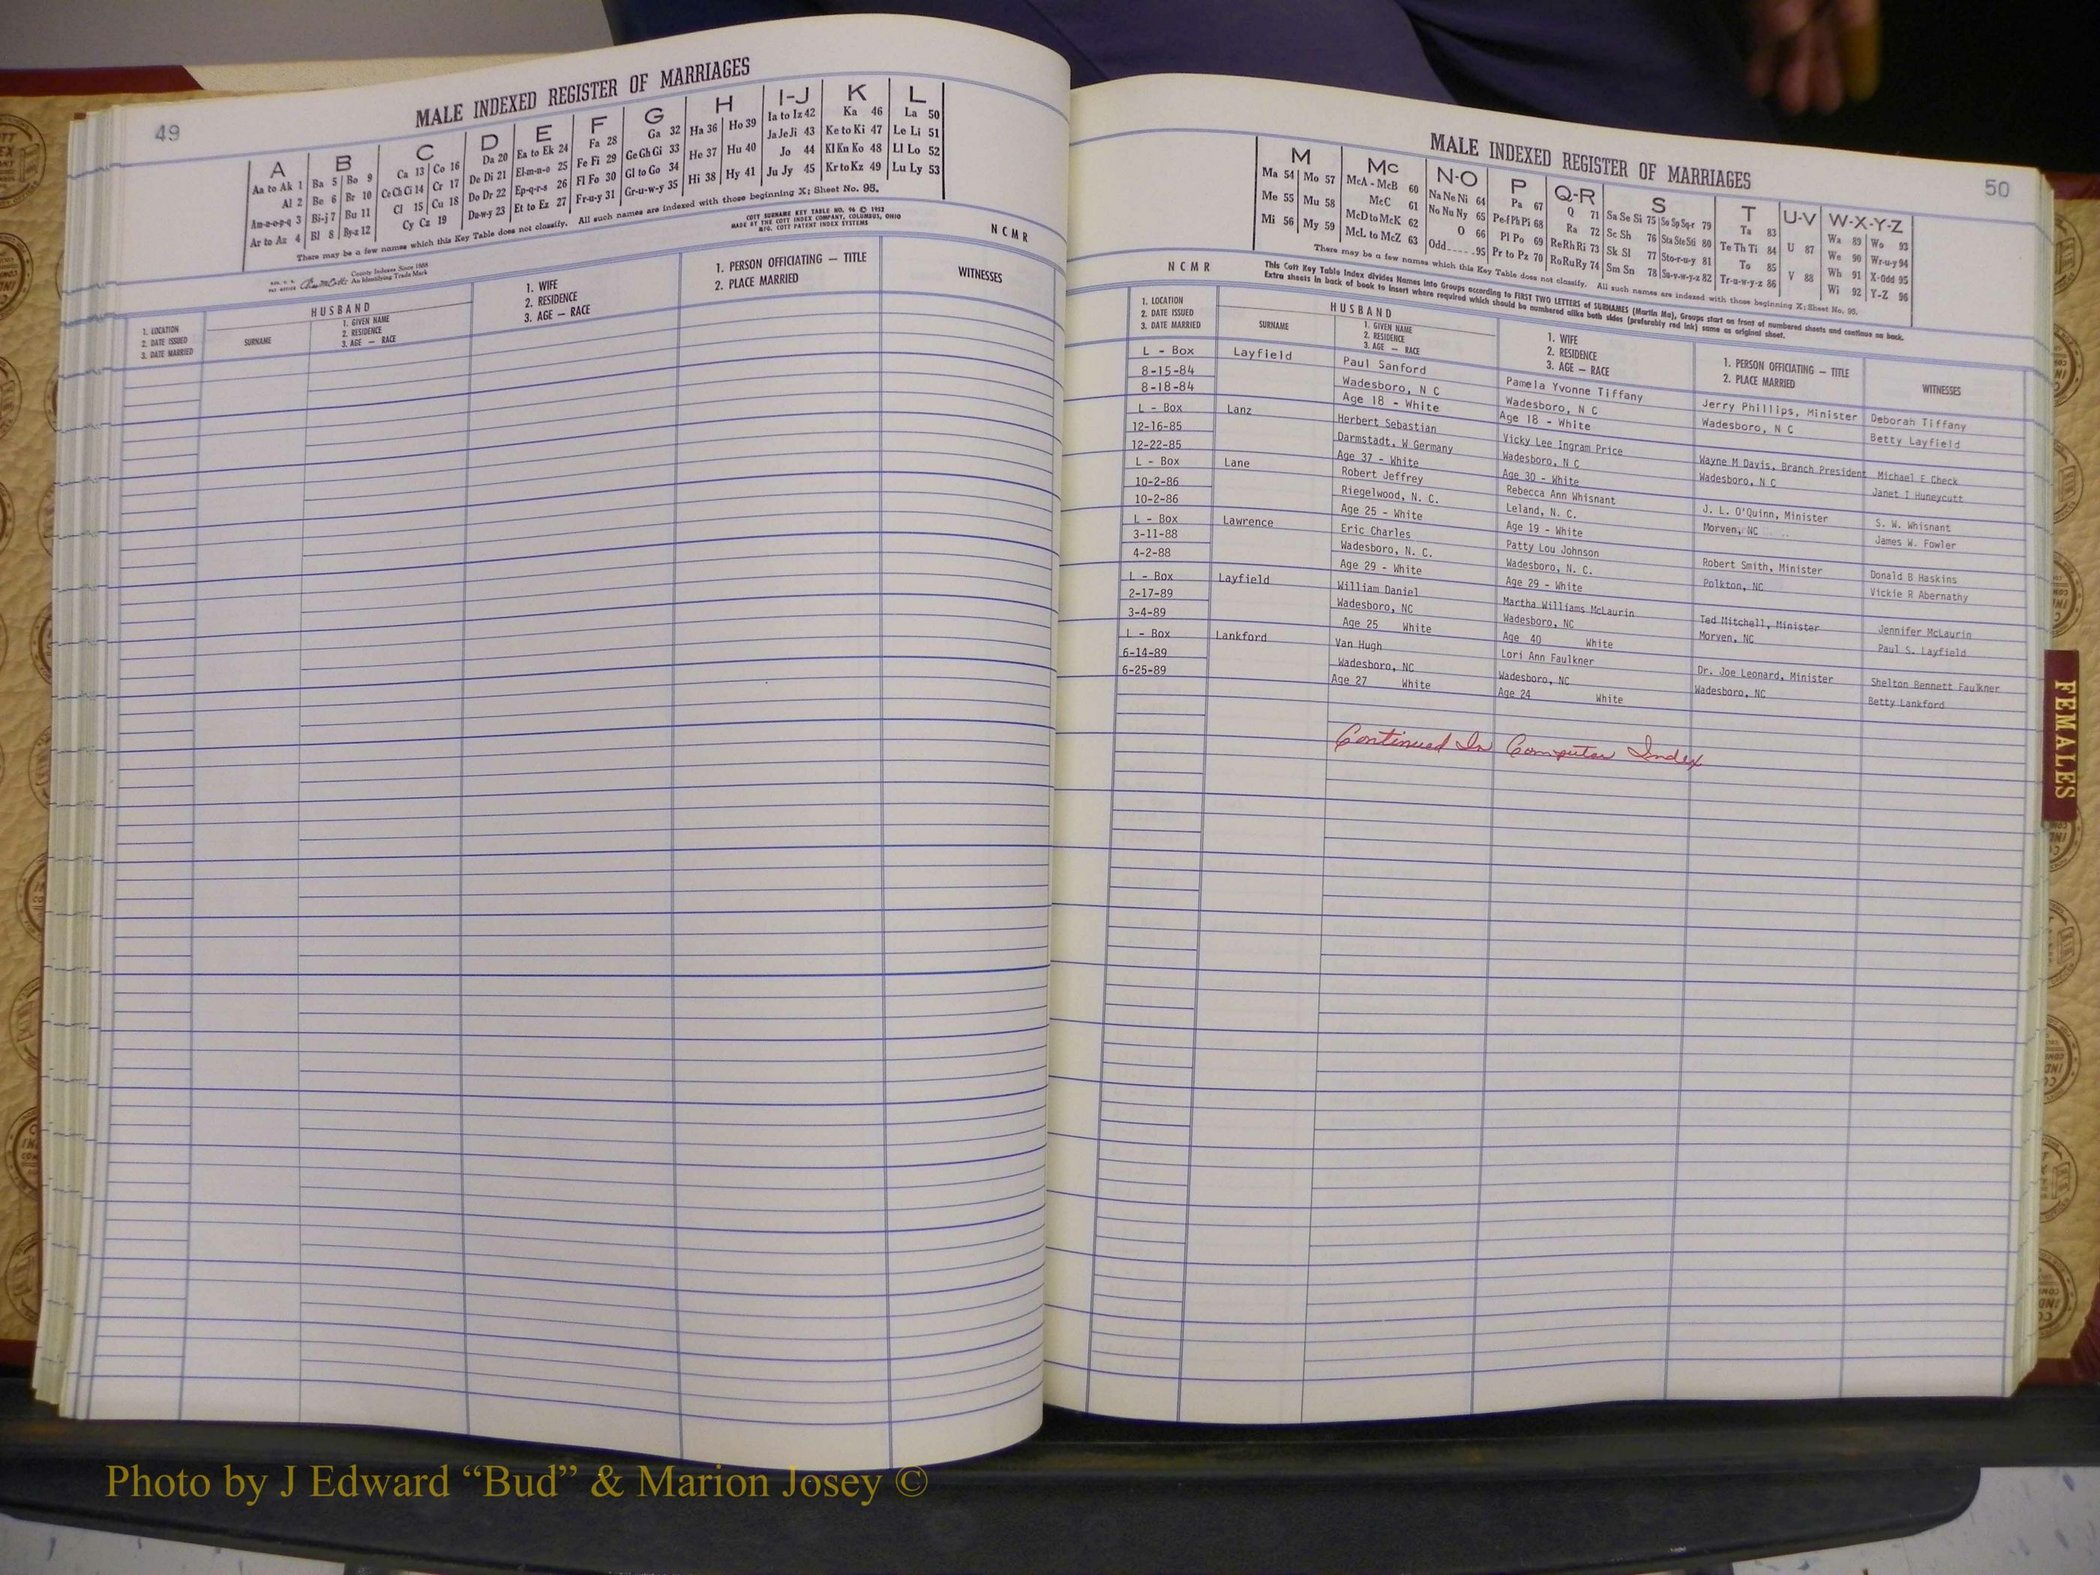 49
MALE INDEXED REGISTER OF MARRIAGES
A B C D E F G H I-J K L
Aa to Ak 1 Ba 5 Bo 9 Ca 13 Co 16 Da 20 Ea to Ek 24 Fa 28 Ga 32 Ha 36 Ho 39 Ia to Iz 42 Ka 46 La 50
Al 2 Be 6 Br 10 Ce Ch Ci 14 Cr 17 De Di 21 El-m-n-o 25 Fe Fi 29 Ge Gh Gi 33 He 37 Hu 40 Ja Je Ji 43 Ke to Ki 47 Le Li 51
Am-n-o-p-q 3 Bi-j 7 Bu 11 Cl 15 Cu 18 Do Dr 22 Ep-q-r-s 26 Fl Fo 30 Gl to Go 34 Hi 38 Hy 41 Jo 44 Kl Kn Ko 48 Ll Lo 52
Ar to Az 4 Bl 8 By-z 12 Cy Cz 19 Du-w-y 23 Et to Ez 27 Fr-u-y 31 Gr-u-w-y 35 Ju Jy 45 Kr to Kz 49 Lu Ly 53
There may be a few names which this Key Table does not classify. All such names are indexed with those beginning X; Sheet No. 95.
COTT SURNAME KEY TABLE NO. 96 © 1952
MADE BY THE COTT INDEX COMPANY, COLUMBUS, OHIO
MFG. COTT PATENT INDEX SYSTEMS
NCMR
County Indexes Since 1888
An Identifying Trade Mark
1. LOCATION
2. DATE ISSUED
3. DATE MARRIED
HUSBAND
SURNAME
1. GIVEN NAME
2. RESIDENCE
3. AGE — RACE
1. WIFE
2. RESIDENCE
3. AGE — RACE
1. PERSON OFFICIATING — TITLE
2. PLACE MARRIED
WITNESSES
50
MALE INDEXED REGISTER OF MARRIAGES
M Mc N-O P Q-R S T U-V W-X-Y-Z
Ma 54 Mo 57 McA - McB 60 Na Ne Ni 64 Pa 67 Q 71 Sa Se Si 75 So Sp Sq-r 79 Ta 83 U 87 Wa 89 Wo 93
Me 55 Mu 58 McC 61 No Nu Ny 65 Pe-f Ph Pi 68 Ra 72 Sc Sh 76 Sta Ste Sti 80 Te Th Ti 84 V 88 We 90 Wr-u-y 94
Mi 56 My 59 McD to McK 62 O 66 Pl Po 69 Re Rh Ri 73 Sk Sl 77 Sto-r-u-y 81 To 85 Wh 91 X-Odd 95
McL to McZ 63 Odd 95 Pr to Pz 70 Ro Ru Ry 74 Sm Sn 78 Su-v-w-y-z 82 Tr-u-w-y-z 86 Wi 92 Y-Z 96
There may be a few names which this Key Table does not classify. All such names are indexed with those beginning X; Sheet No. 95.
NCMR
This Cott Key Table Index divides Names into Groups according to FIRST TWO LETTERS of SURNAMES (Martin Ma), Groups start on front of numbered sheets and continue on back.
Extra sheets in back of book to insert where required which should be numbered alike both sides (preferably red ink) same as original sheet.
1. LOCATION
2. DATE ISSUED
3. DATE MARRIED
HUSBAND
SURNAME
1. GIVEN NAME
2. RESIDENCE
3. AGE — RACE
1. WIFE
2. RESIDENCE
3. AGE — RACE
1. PERSON OFFICIATING — TITLE
2. PLACE MARRIED
WITNESSES
L - Box Layfield Paul Sanford Pamela Yvonne Tiffany Jerry Phillips, Minister Deborah Tiffany
8-15-84 Wadesboro, N C Wadesboro, N C Wadesboro, N C Betty Layfield
8-18-84 Age 18 - White Age 18 - White
L - Box Lanz Herbert Sebastian Vicky Lee Ingram Price Wayne M Davis, Branch President Michael E Check
12-16-85 Darmstadt, W Germany Wadesboro, N C Wadesboro, N C Janet I Huneycutt
12-22-85 Age 37 - White Age 30 - White
L - Box Lane Robert Jeffrey Rebecca Ann Whisnant J. L. O'Quinn, Minister S. W. Whisnant
10-2-86 Riegelwood, N. C. Leland, N. C. Morven, NC James W. Fowler
10-2-86 Age 25 - White Age 19 - White
L - Box Lawrence Eric Charles Patty Lou Johnson Robert Smith, Minister Donald B Haskins
3-11-88 Wadesboro, N. C. Wadesboro, N. C. Polkton, NC Vickie R Abernathy
4-2-88 Age 29 - White Age 29 - White
L - Box Layfield William Daniel Martha Williams McLaurin Ted Mitchell, Minister Jennifer McLaurin
2-17-89 Wadesboro, NC Wadesboro, NC Morven, NC Paul S. Layfield
3-4-89 Age 25 White Age 40 White
L - Box Lankford Van Hugh Lori Ann Faulkner Dr. Joe Leonard, Minister Shelton Bennett Faulkner
6-14-89 Wadesboro, NC Wadesboro, NC Wadesboro, NC Betty Lankford
6-25-89 Age 27 White Age 24 White
Continued In Computer Index
FEMALES
Photo by J Edward “Bud” & Marion Josey ©